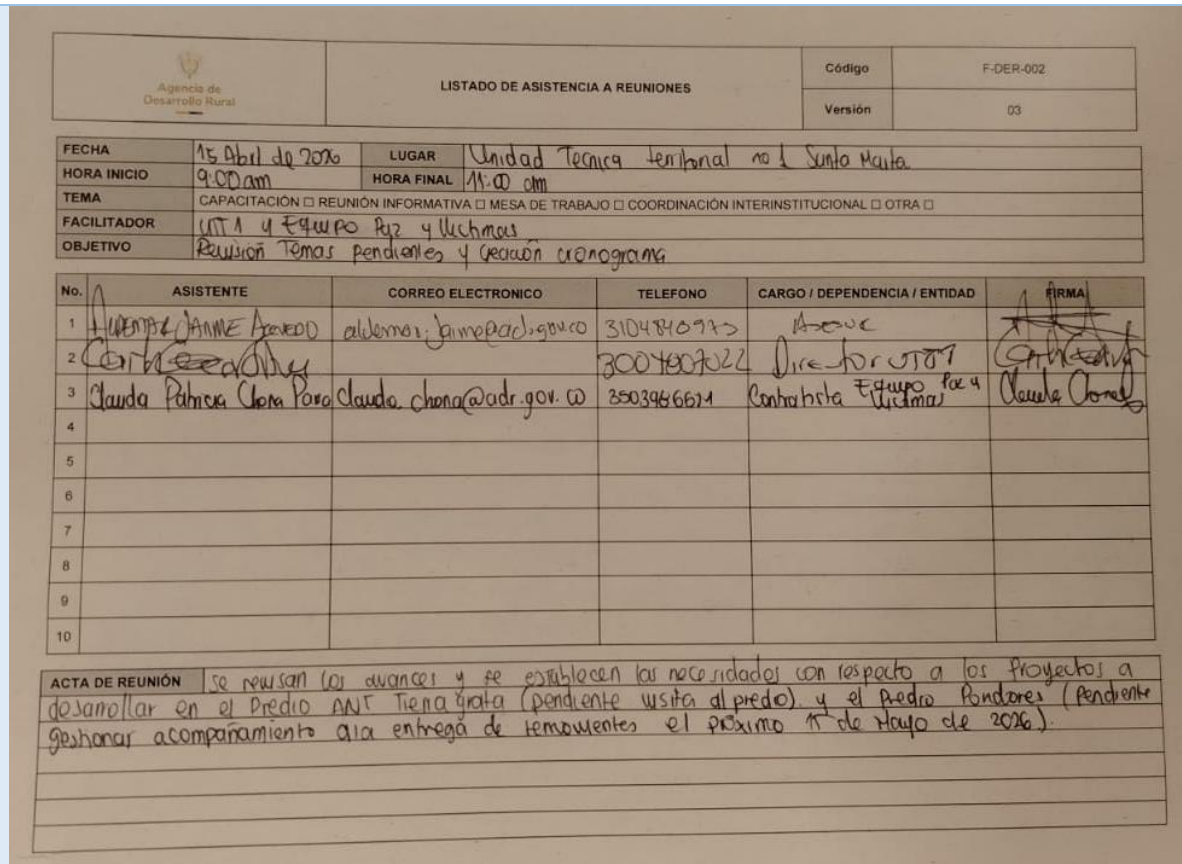 Agencia de
Desarrollo Rural
LISTADO DE ASISTENCIA A REUNIONES
Código F-DER-002
Versión 03
FECHA 15 Abril de 2026 LUGAR Unidad Tecnica territorial no 1 Santa Marta
HORA INICIO 9:00 am HORA FINAL 11:00 am
TEMA CAPACITACIÓN □ REUNIÓN INFORMATIVA □ MESA DE TRABAJO □ COORDINACIÓN INTERINSTITUCIONAL □ OTRA □
FACILITADOR UTT 1 y Equipo Paz y Victimas
OBJETIVO Revisión Temas pendientes y creación cronograma
No. ASISTENTE CORREO ELECTRONICO TELEFONO CARGO / DEPENDENCIA / ENTIDAD FIRMA
1 Aldemar Jaime Acevedo aldemar.jaime@adr.gov.co 3104840973 Asesor
2 Director UTT1
3 Claudia Patricia Chona claudia.chona@adr.gov.co Contratista Equipo Paz y Victimas Claudia Chona
4
5
6
7
8
9
10
ACTA DE REUNIÓN Se revisan los avances y se establecen las necesidades con respecto a los proyectos a
desarrollar en el Predio ANT Tierra grata (pendiente visita al predio). y el Predio Pondores (Pendiente
gestionar acompañamiento a la entrega de semovientes el próximo de Mayo de 2026).